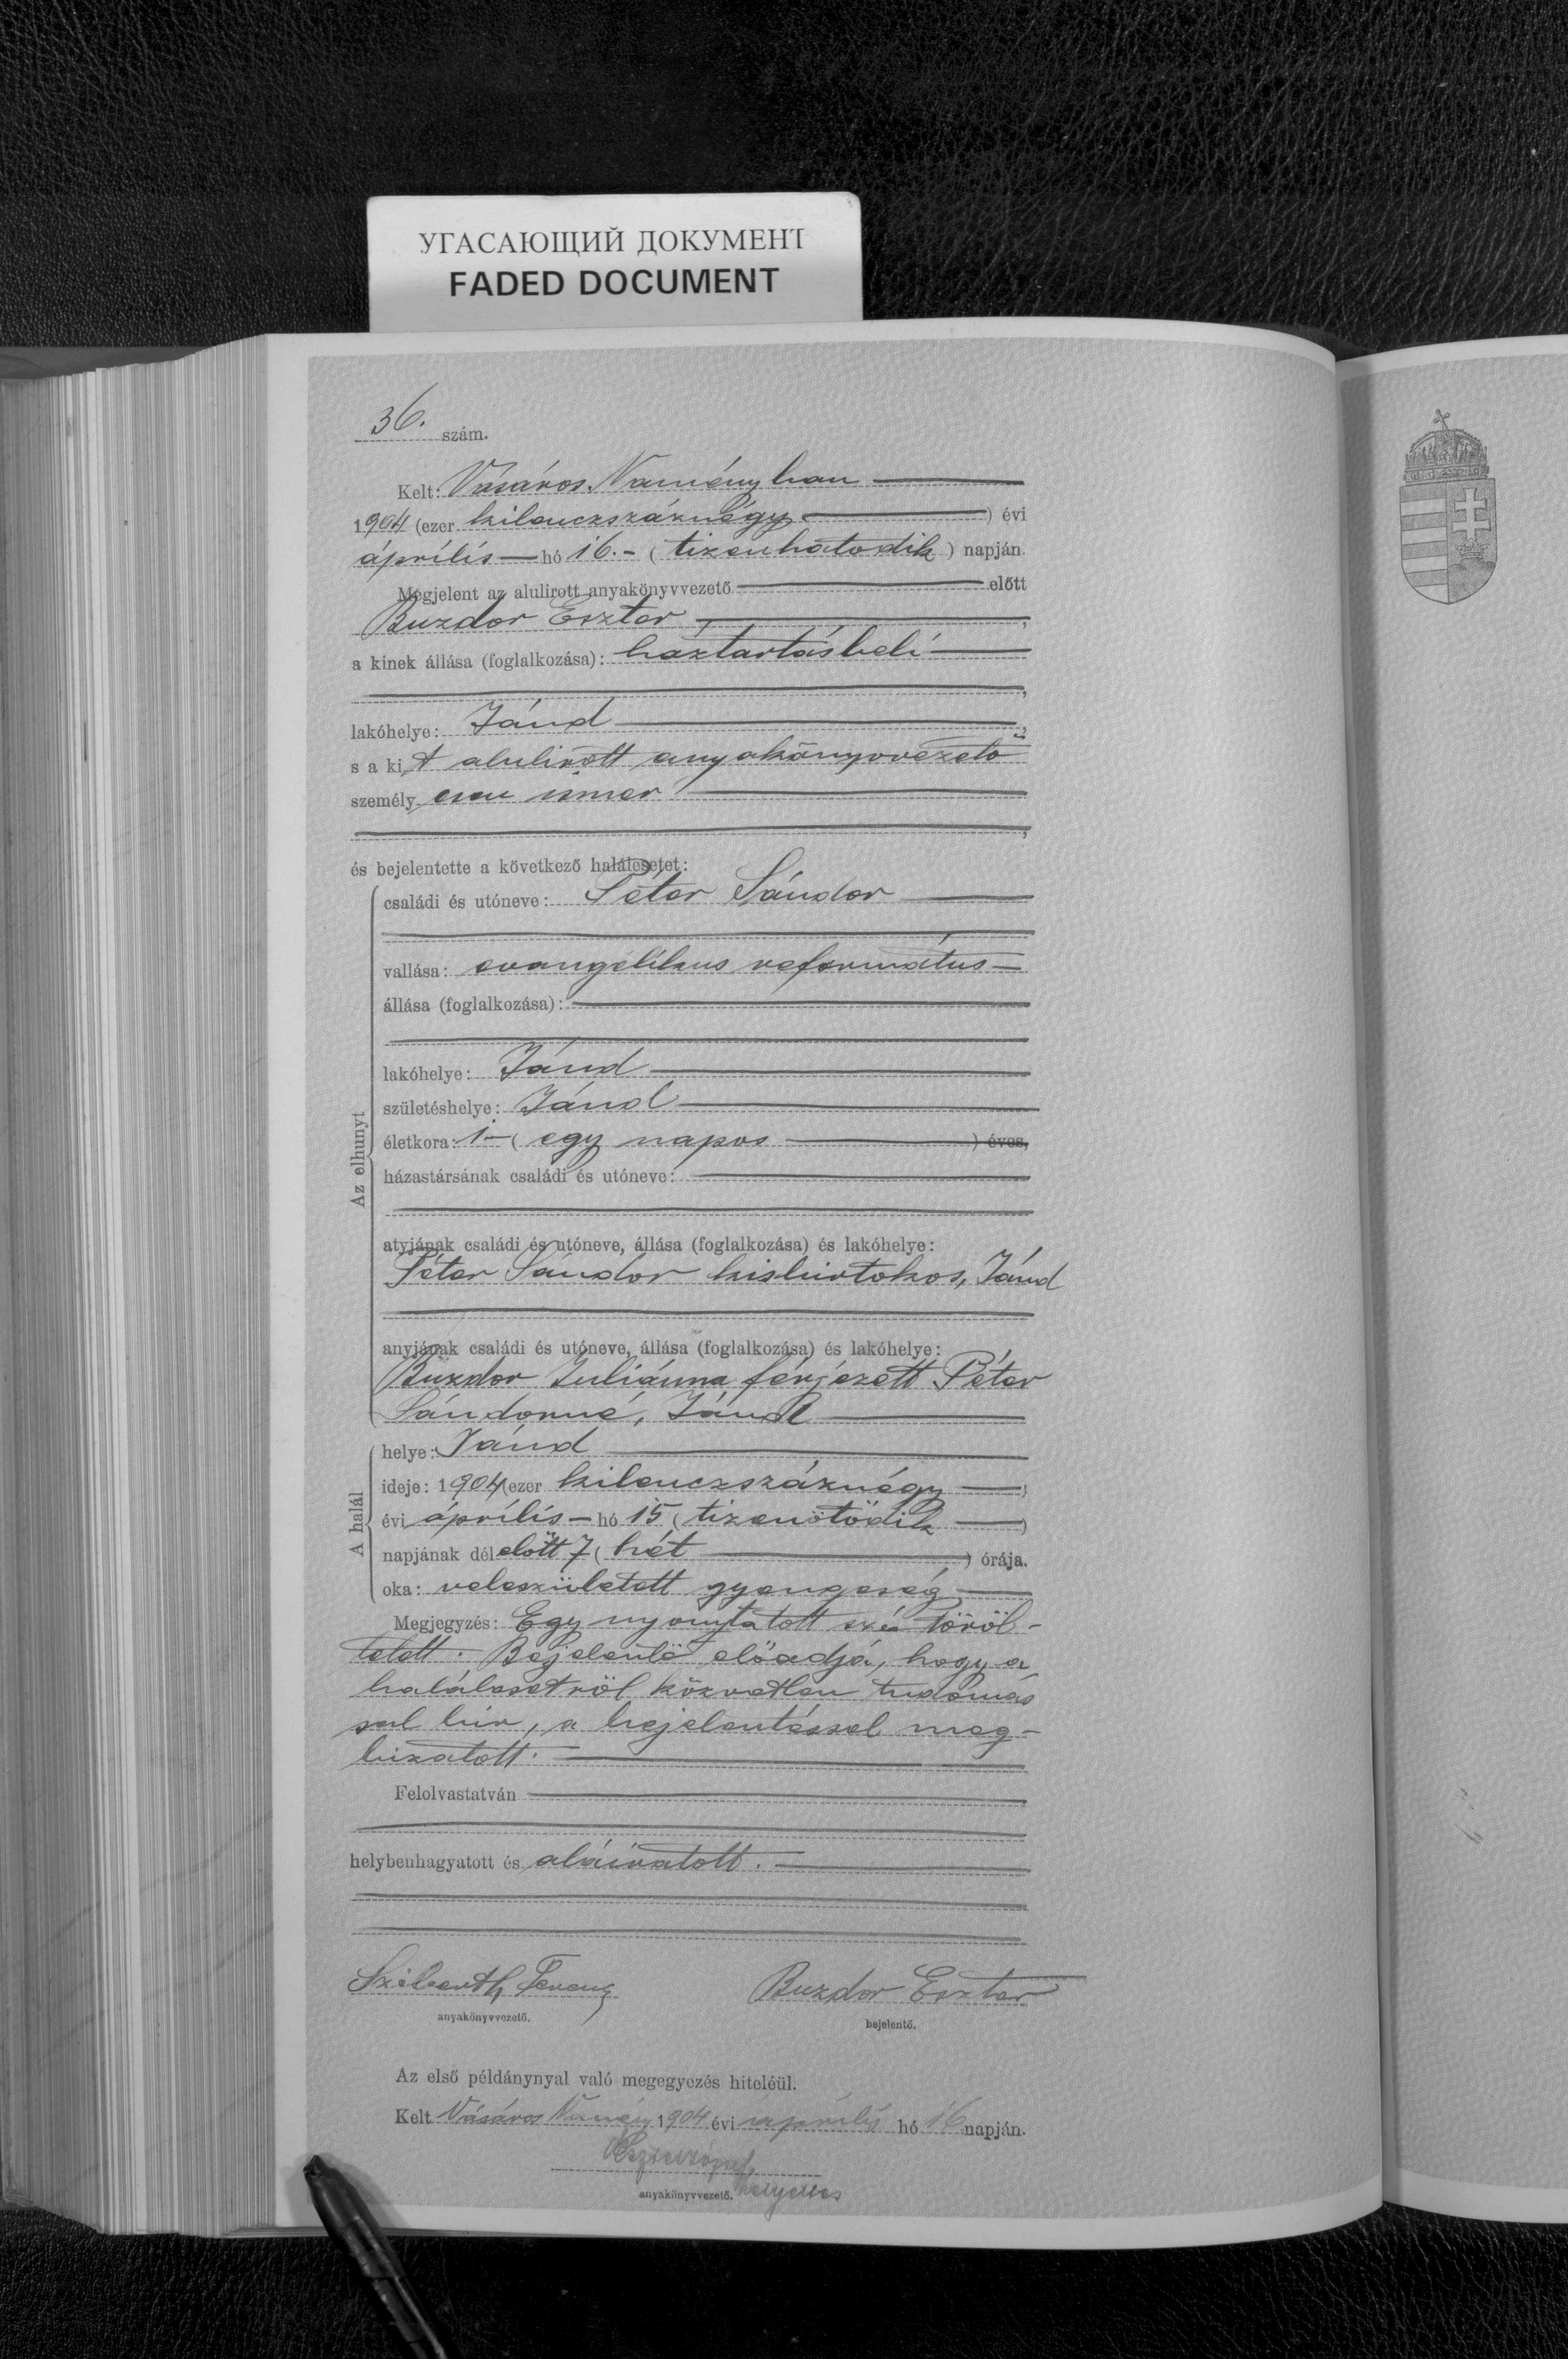 УГАСАЮЩИЙ ДОКУМЕНТ
FADED DOCUMENT
36. szám.
Kelt: Vásáros-Naményban
1904 (ezer kilenczszáznégy) évi
április hó 16.- (tizenhatodik) napján.
Megjelent az alulirott anyakönyvvezető előtt
Buzdor Eszter,
a kinek állása (foglalkozása): háztartásbeli,
lakóhelye: Jánd,
s a kit alulirott anyakönyvvezető
személyesen ismer,
és bejelentette a következő halálesetet:
Az elhunyt
családi és utóneve: Péter Sándor
vallása: evangélikus református
állása (foglalkozása):
lakóhelye: Jánd
születéshelye: Jánd
életkora: 1- (egy napos) éves,
házastársának családi és utóneve:
atyjának családi és utóneve, állása (foglalkozása) és lakóhelye:
Péter Sándor kisbirtokos, Jánd
anyjának családi és utóneve, állása (foglalkozása) és lakóhelye:
Buzdor Juliánna férjezett Péter
Sándorné, Jánd
A halál
helye: Jánd
ideje: 1904 (ezer kilenczszáznégy)
évi április hó 15 (tizenötödik)
napjának délelőtt 7 (hét) órája.
oka: veleszületett gyengeség
Megjegyzés: Egy nyomtatott szó töröl-
tetett. Bejelentő előadja, hogy a
halálesetről közvetlen tudomás
sal bir, a bejelentéssel meg-
bizatott.
Felolvastatván
helybenhagyatott és aláiratott.
Ferencz
anyakönyvvezető.
Buzdor Eszter
bejelentő.
Az első példánynyal való megegyezés hiteléül.
Kelt Vásáros Namény 1904 évi április hó 16 napján.
anyakönyvvezető. helyettes